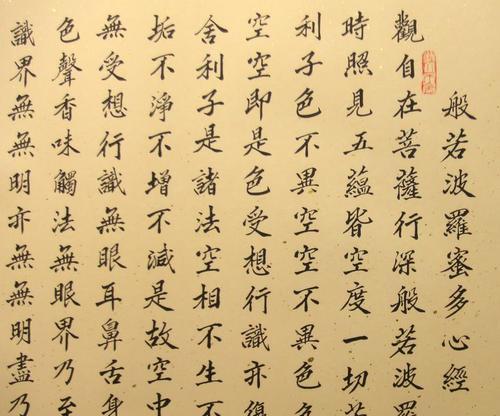 般若波羅蜜多心經
觀自在菩薩行深般若波羅
時照見五蘊皆空度一切
利子色不異空空不異色
空空即是色受想行識亦復
舍利子是諸法空相不生不
垢不淨不增不減是故空中
無受想行識無眼耳鼻舌身
色聲香味觸法無眼界乃至
識界無無明亦無無明盡乃